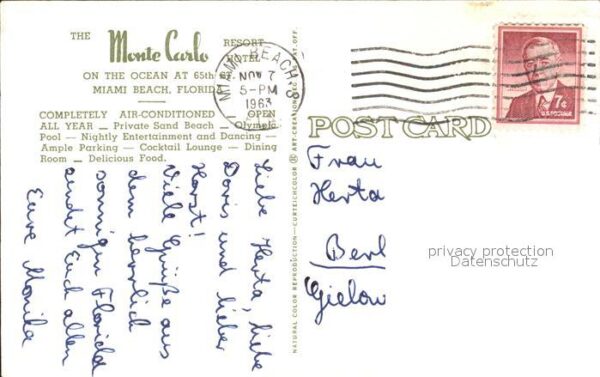 THE Monte Carlo RESORT HOTEL
ON THE OCEAN AT 65th ST.
MIAMI BEACH, FLORIDA
COMPLETELY AIR-CONDITIONED OPEN
ALL YEAR — Private Sand Beach — Olympic
Pool — Nightly Entertainment and Dancing —
Ample Parking — Cocktail Lounge — Dining
Room — Delicious Food.
MIAMI BEACH
NOV 7
5-PM
1963
7¢
U.S. POSTAGE
POST CARD
NATURAL COLOR REPRODUCTION—CURTEICHCOLOR ® ART-CREATION
Liebe Herta, liebe
Doris und lieber
Horst!
Viele Grüße aus
dem herrlich
sonnigen Florida
sendet Euch allen
Eure Monika
Frau
Herta
Berl
Gielow
privacy protection
Datenschutz